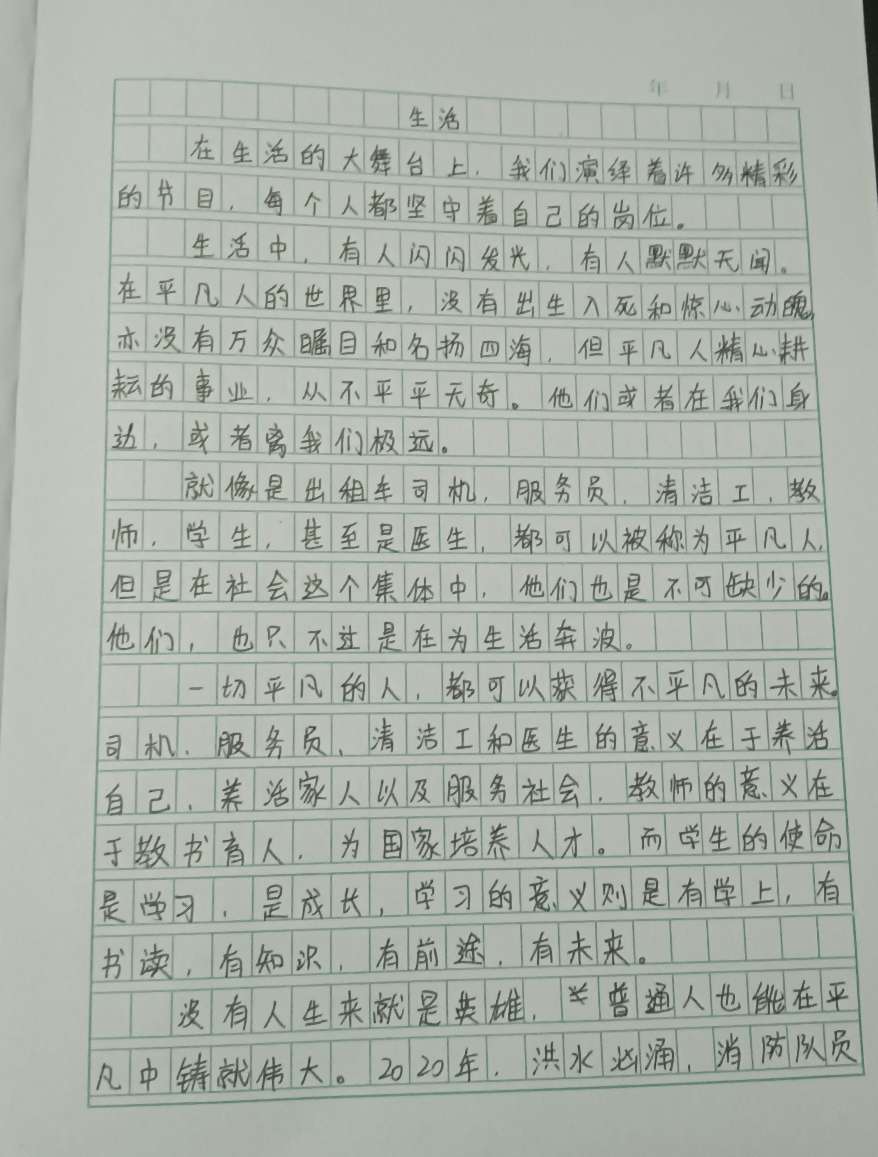 年 月 日
生活
在生活的大舞台上，我们演绎着许多精彩
的节目，每个人都坚守着自己的岗位。
生活中，有人闪闪发光，有人默默无闻。
在平凡人的世界里，没有出生入死和惊心动魄，
亦没有万众瞩目和名扬四海，但平凡人精心耕
耘的事业，从不平平无奇。他们或者在我们身
边，或者离我们极远。
就像是出租车司机，服务员，清洁工，教
师，学生，甚至是医生，都可以被称为平凡人，
但是在社会这个集体中，他们也是不可缺少的。
他们，也只不过是在为生活奔波。
一切平凡的人，都可以获得不平凡的未来。
司机、服务员、清洁工和医生的意义在于养活
自己、养活家人以及服务社会，教师的意义在
于教书育人，为国家培养人才。而学生的使命
是学习，是成长，学习的意义则是有学上，有
书读，有知识，有前途，有未来。
没有人生来就是英雄，普通人也能在平
凡中铸就伟大。2020年，洪水汹涌，消防队员